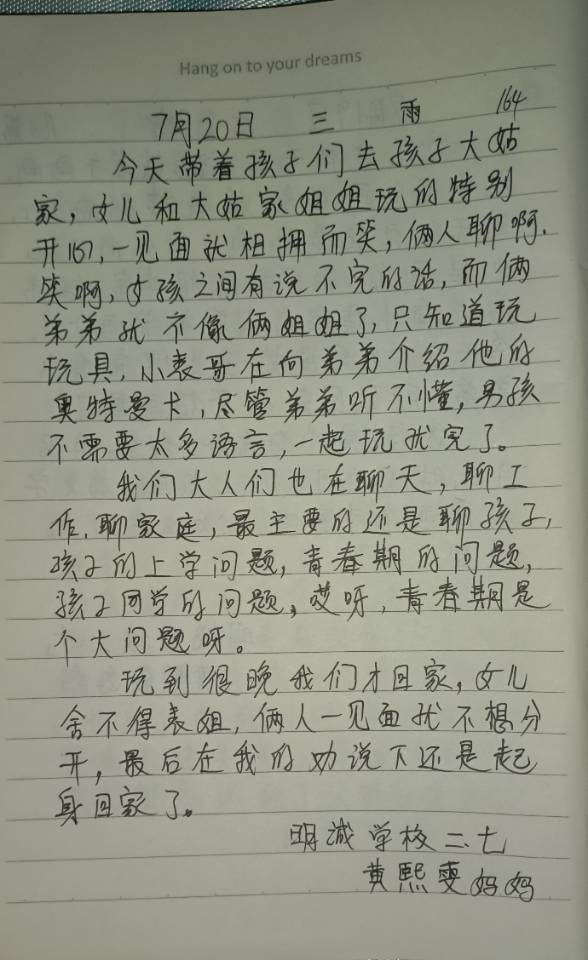 Hang on to your dreams
164
7月20日 三 雨
今天带着孩子们去孩子大姑
家,女儿和大姑家姐姐玩的特别
开心,一见面就相拥而笑,俩人聊啊,
笑啊,女孩之间有说不完的话,而俩
弟弟就不像俩姐姐了,只知道玩
玩具,小表哥在向弟弟介绍他的
奥特曼卡,尽管弟弟听不懂,男孩
不需要太多语言,一起玩就完了。
我们大人们也在聊天,聊工
作,聊家庭,最主要的还是聊孩子,
孩子的上学问题,青春期的问题,
孩子同学的问题。哎呀,青春期是
个大问题呀。
玩到很晚我们才回家,女儿
舍不得表姐,俩人一见面就不想分
开,最后在我的劝说下还是起
身回家了。
明诚学校二.七
黄熙雯妈妈